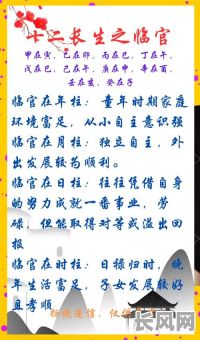 十二长生之临官
甲在寅、乙在卯、丙在巳、丁在午、
戊在巳、己在午、庚在申、辛在酉、
壬在亥、癸在子
临官在年柱：童年时期家庭
环境富足，从小自主意识强
临官在月柱：独立自主，外
出发展较为顺利。
临官在日柱：往往凭借自身
的努力成就一番事业，劳
碌，但能取得对等或溢出回
报
临官在时柱：日禄归时，晚
年生活富足，子女发展较好
且孝顺
拒绝迷信，仅供
长风网